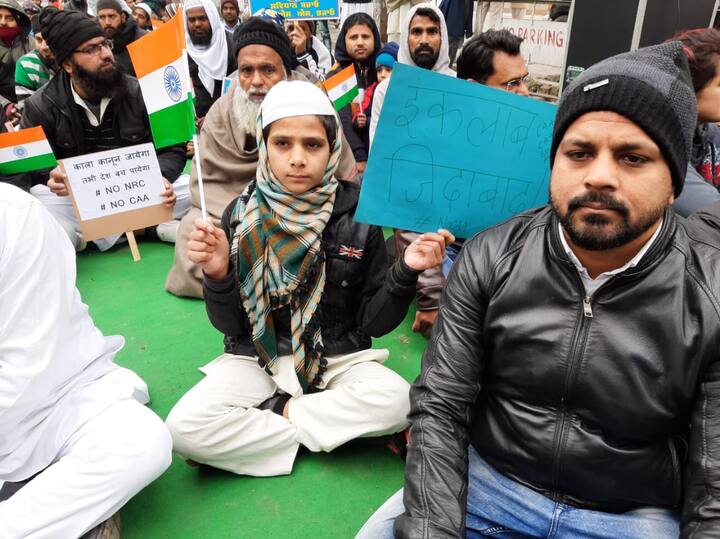 NO PARKING
काला कानून जायेगा
तभी देश बच पायेगा
# NO NRC
# NO CAA
इंकलाब
जिंदाबाद